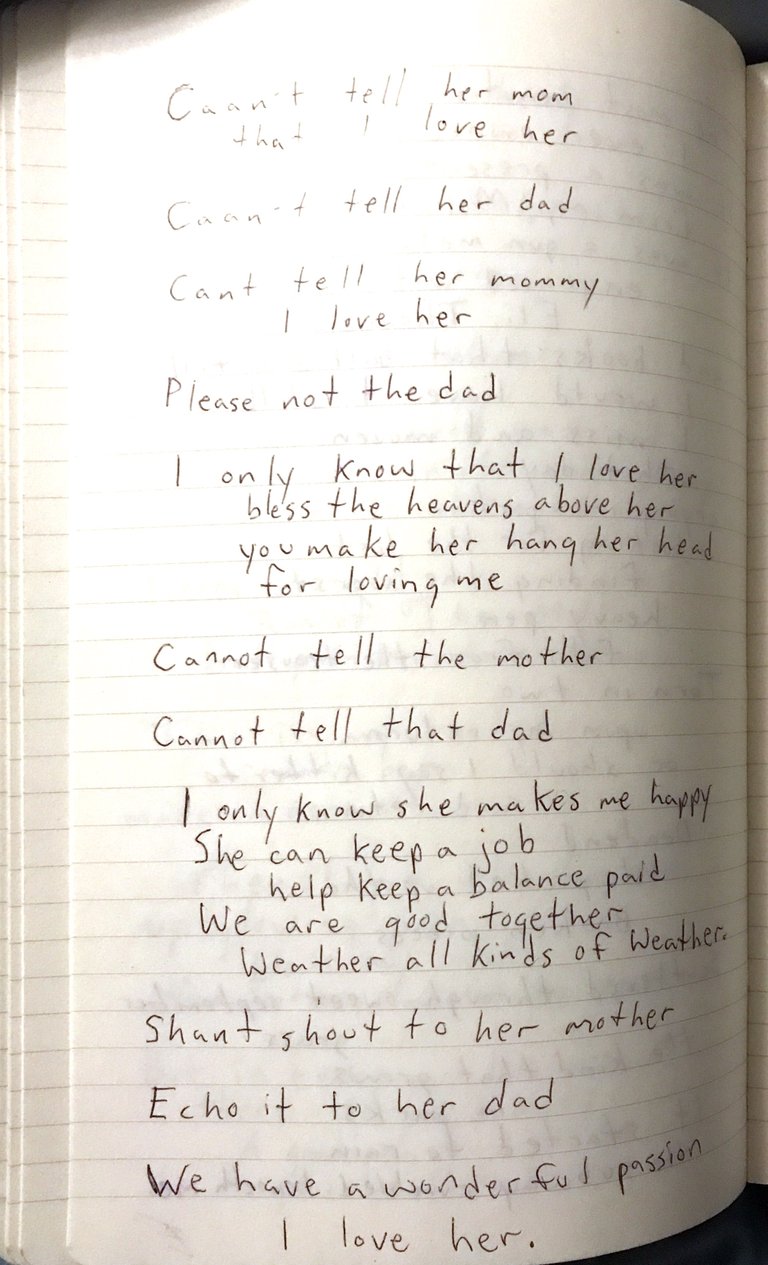 Caan't tell her mom
that I love her
Caan't tell her dad
Cant tell her mommy
I love her
Please not the dad
I only know that I love her
bless the heavens above her
you make her hang her head
for loving me
Cannot tell the mother
Cannot tell that dad
I only know she makes me happy
She can keep a job
help keep a balance paid
We are good together
Weather all kinds of weather.
Shant shout to her mother
Echo it to her dad
We have a wonderful passion
I love her.